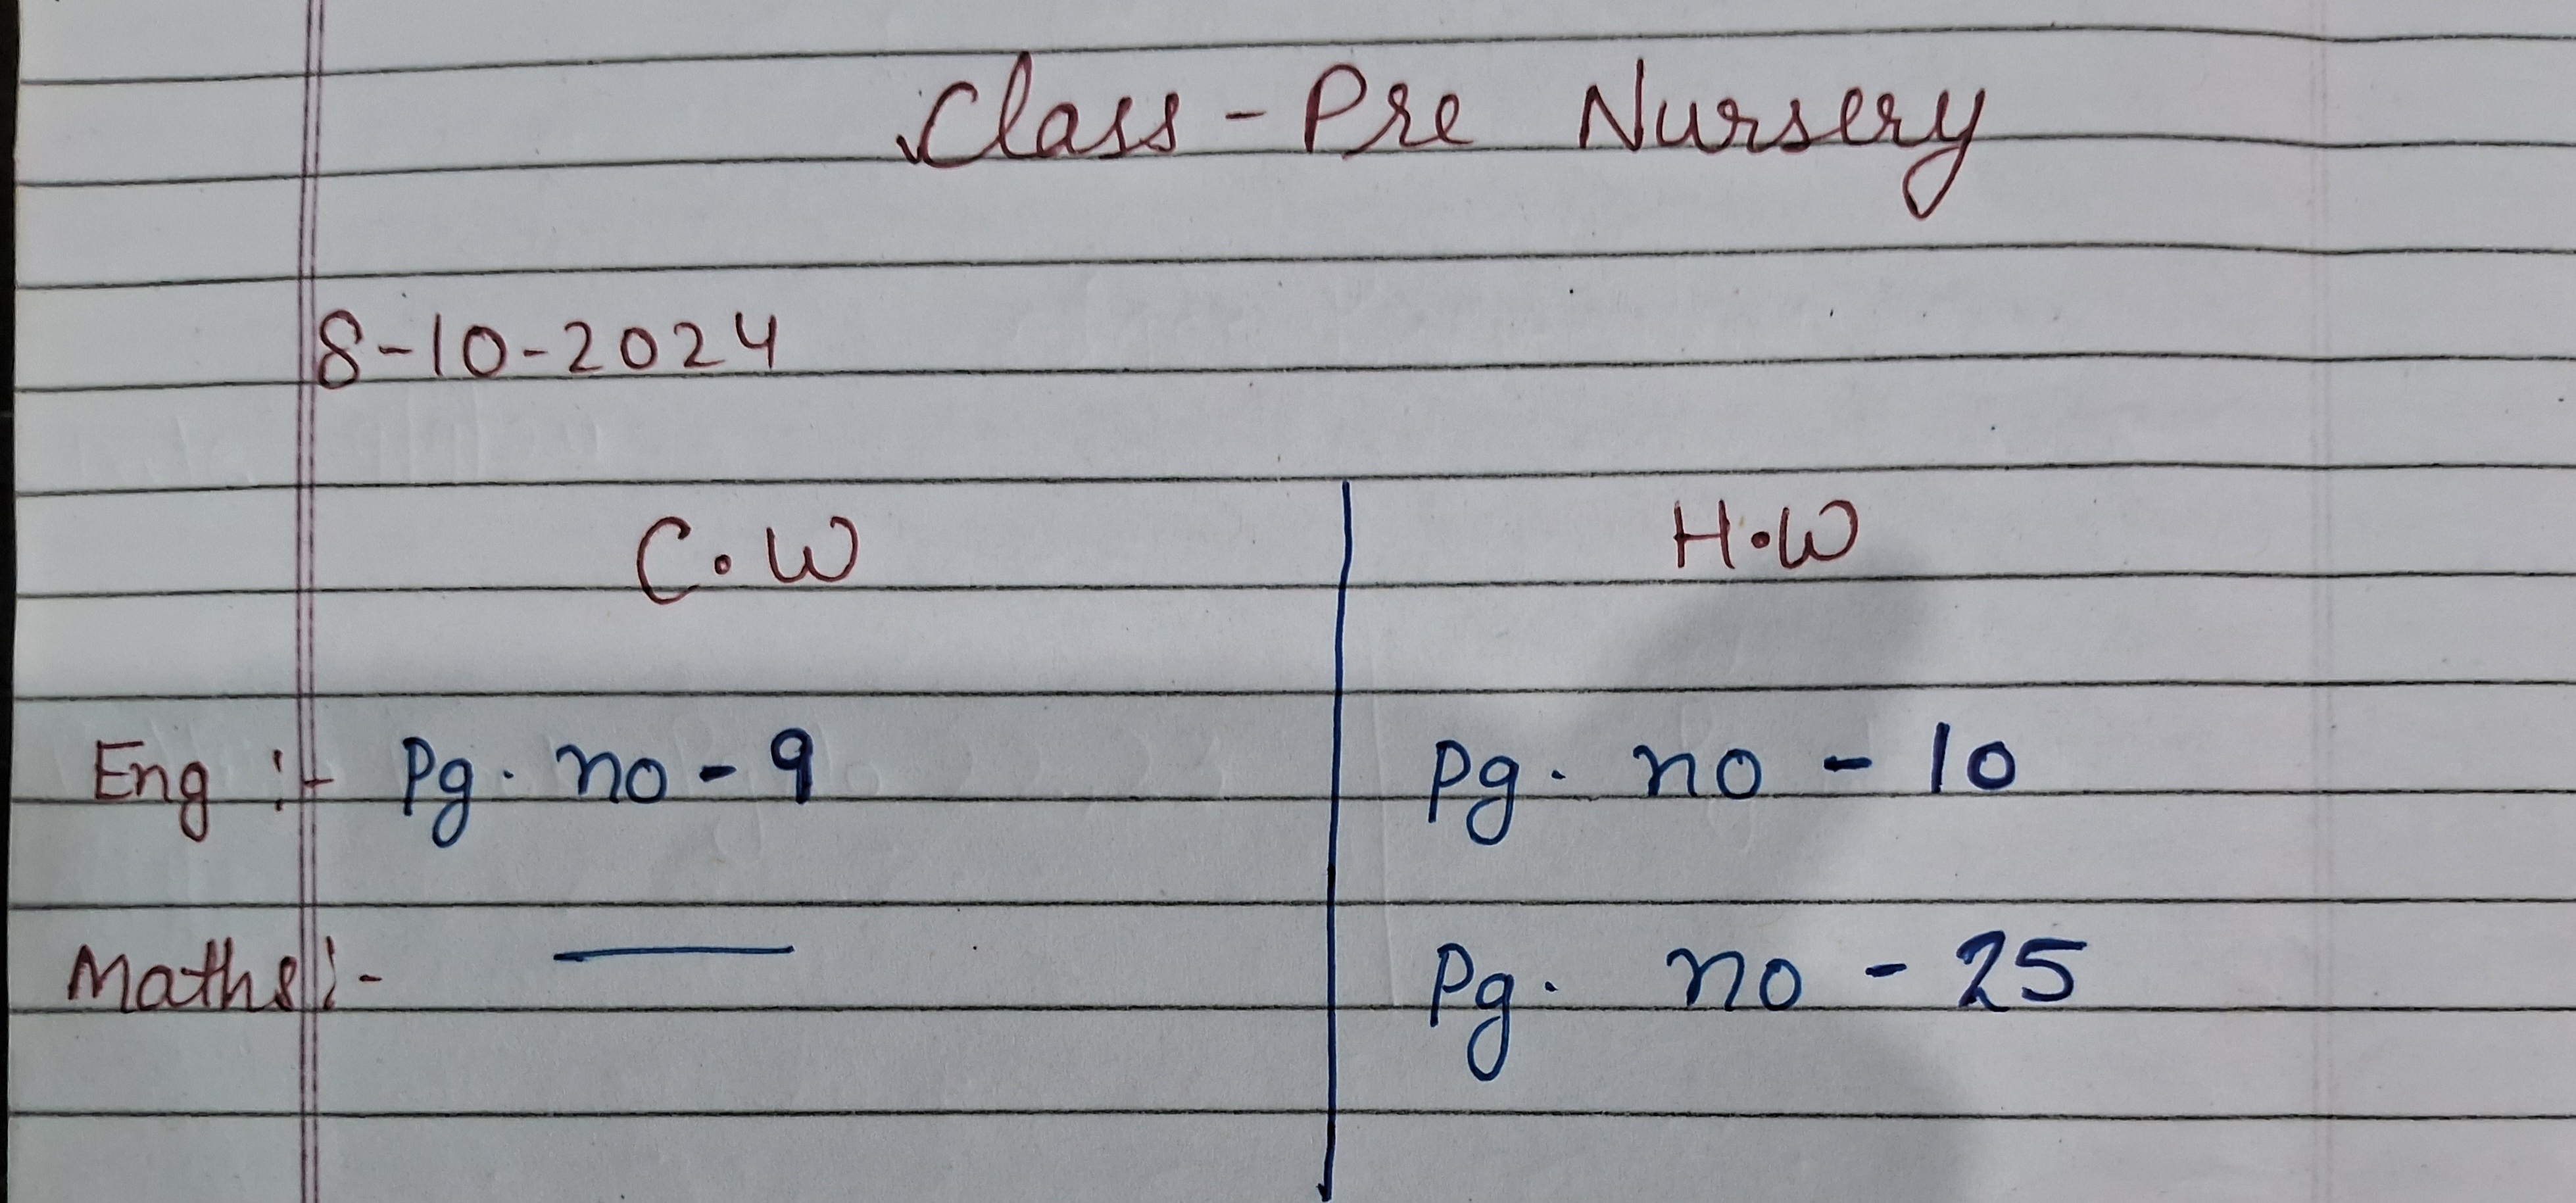 Class - Pre Nursery
8-10-2024
C.W H.W
Eng :- Pg. no - 9 Pg. no - 10
Maths :- — Pg. no - 25